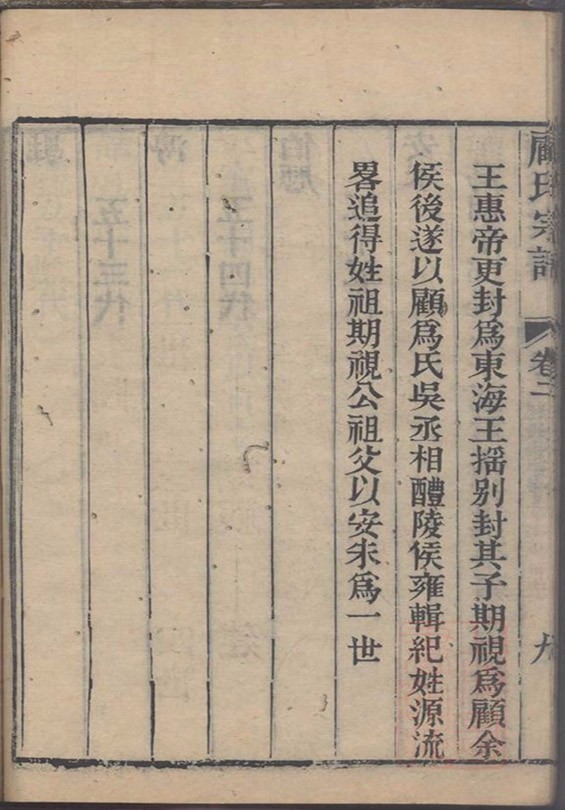 顧氏宗譜 卷二 九
王惠帝更封爲東海王摇别封其子期視爲顧余
侯後遂以顧爲氏吳丞相醴陵侯雍輯紀姓源流
畧追得姓祖期視公祖父以安朱爲一世